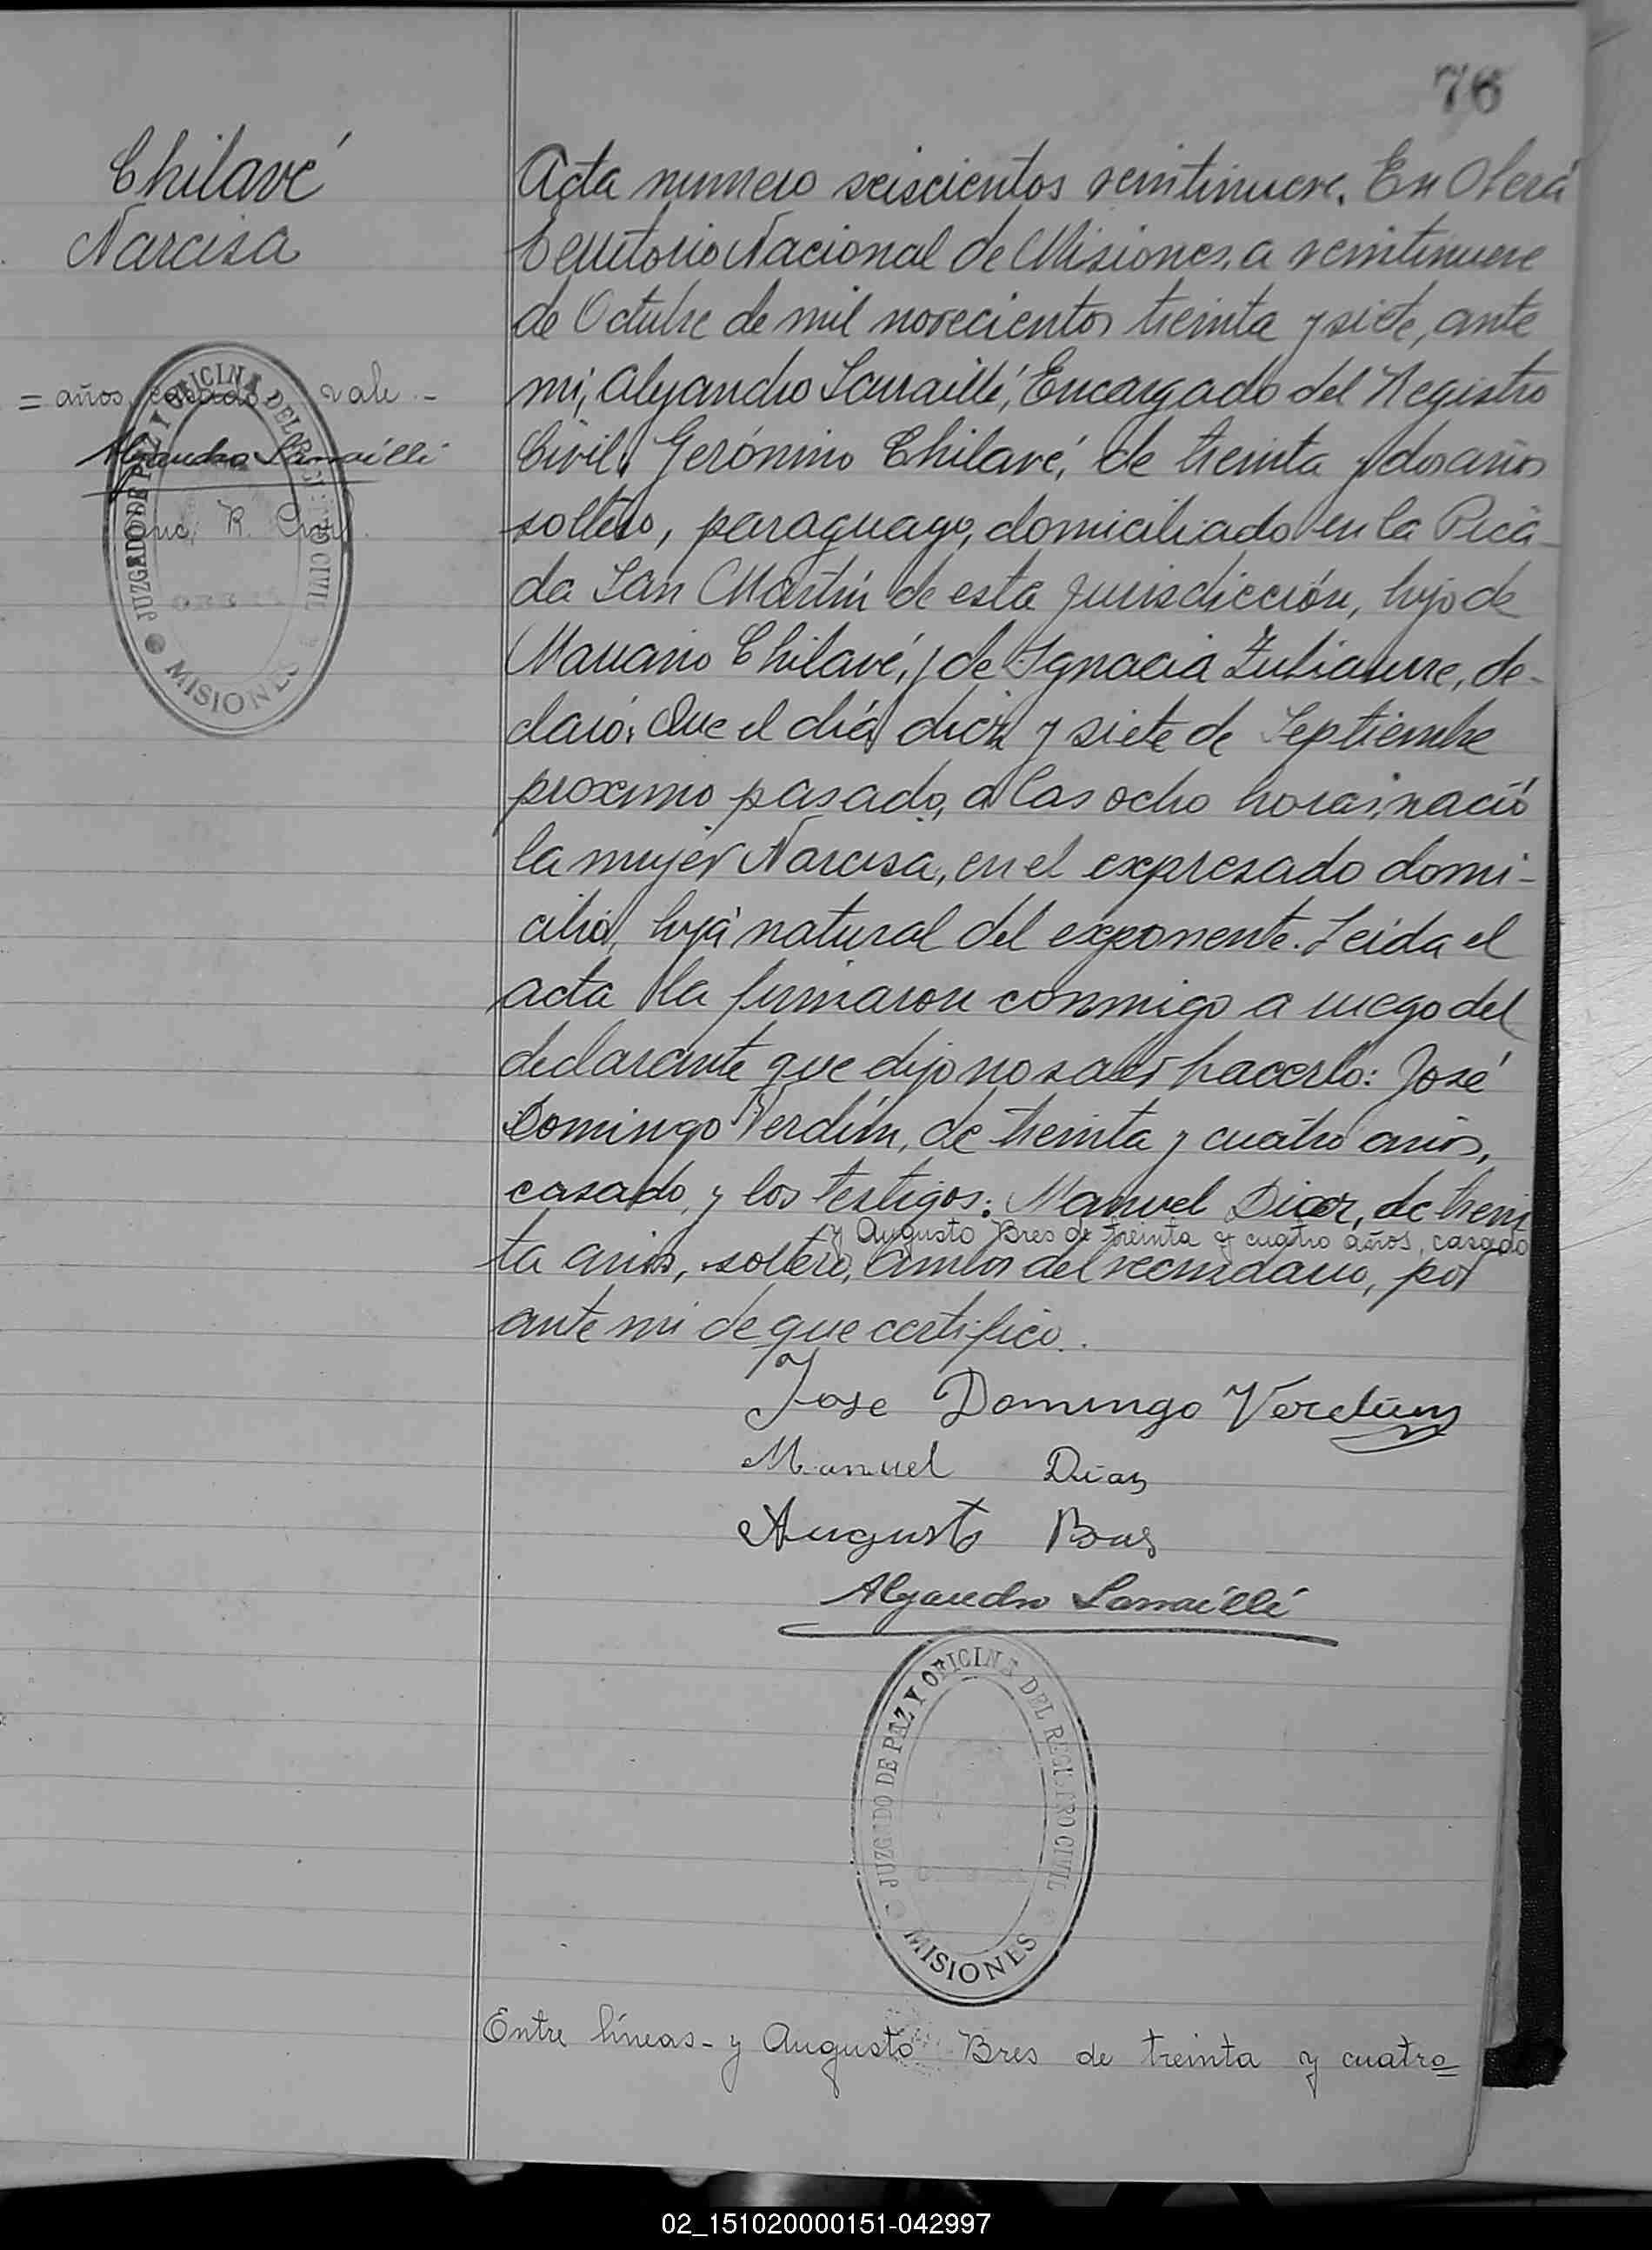 76
Chilavé
Narcisa
= años, casado - vale -
Alejandro Sarraillé
Enc. R. Civil.
JUZGADO DE PAZ Y OFICINA DEL REGISTRO CIVIL
MISIONES
Acta numero seiscientos veintinueve. En Oberá
Territorio Nacional de Misiones, a veintinueve
de Octubre de mil novecientos treinta y siete, ante
mi, Alejandro Sarraillé, Encargado del Registro
Civil, Gerónimo Chilavé, de treinta y dos años
soltero, paraguayo, domiciliado en la Pica-
da San Martín de esta jurisdicción, hijo de
Mariano Chilavé, y de Ignacia Zubiaurre, de-
claró: Que el día diez y siete de Septiembre
proximo pasado, a las ocho horas, nació
la mujer Narcisa, en el expresado domi-
cilio, hija natural del exponente. Leida el
acta la firmaron conmigo a ruego del
declarante que dijo no saber hacerlo: José
Domingo Verdún, de treinta y cuatro años,
casado, y los testigos: Manuel Diaz, de trein
y Augusto Bres de treinta y cuatro años, casado
ta años, soltero, ambos del vecindario, por
ante mi de que certifico.
Jose Domingo Verdún
Manuel Diaz
Augusto Bres
Alejandro Sarraillé
JUZGADO DE PAZ Y OFICINA DEL REGISTRO CIVIL
MISIONES
Entre líneas - y Augusto Bres de treinta y cuatro
02_151020000151-042997